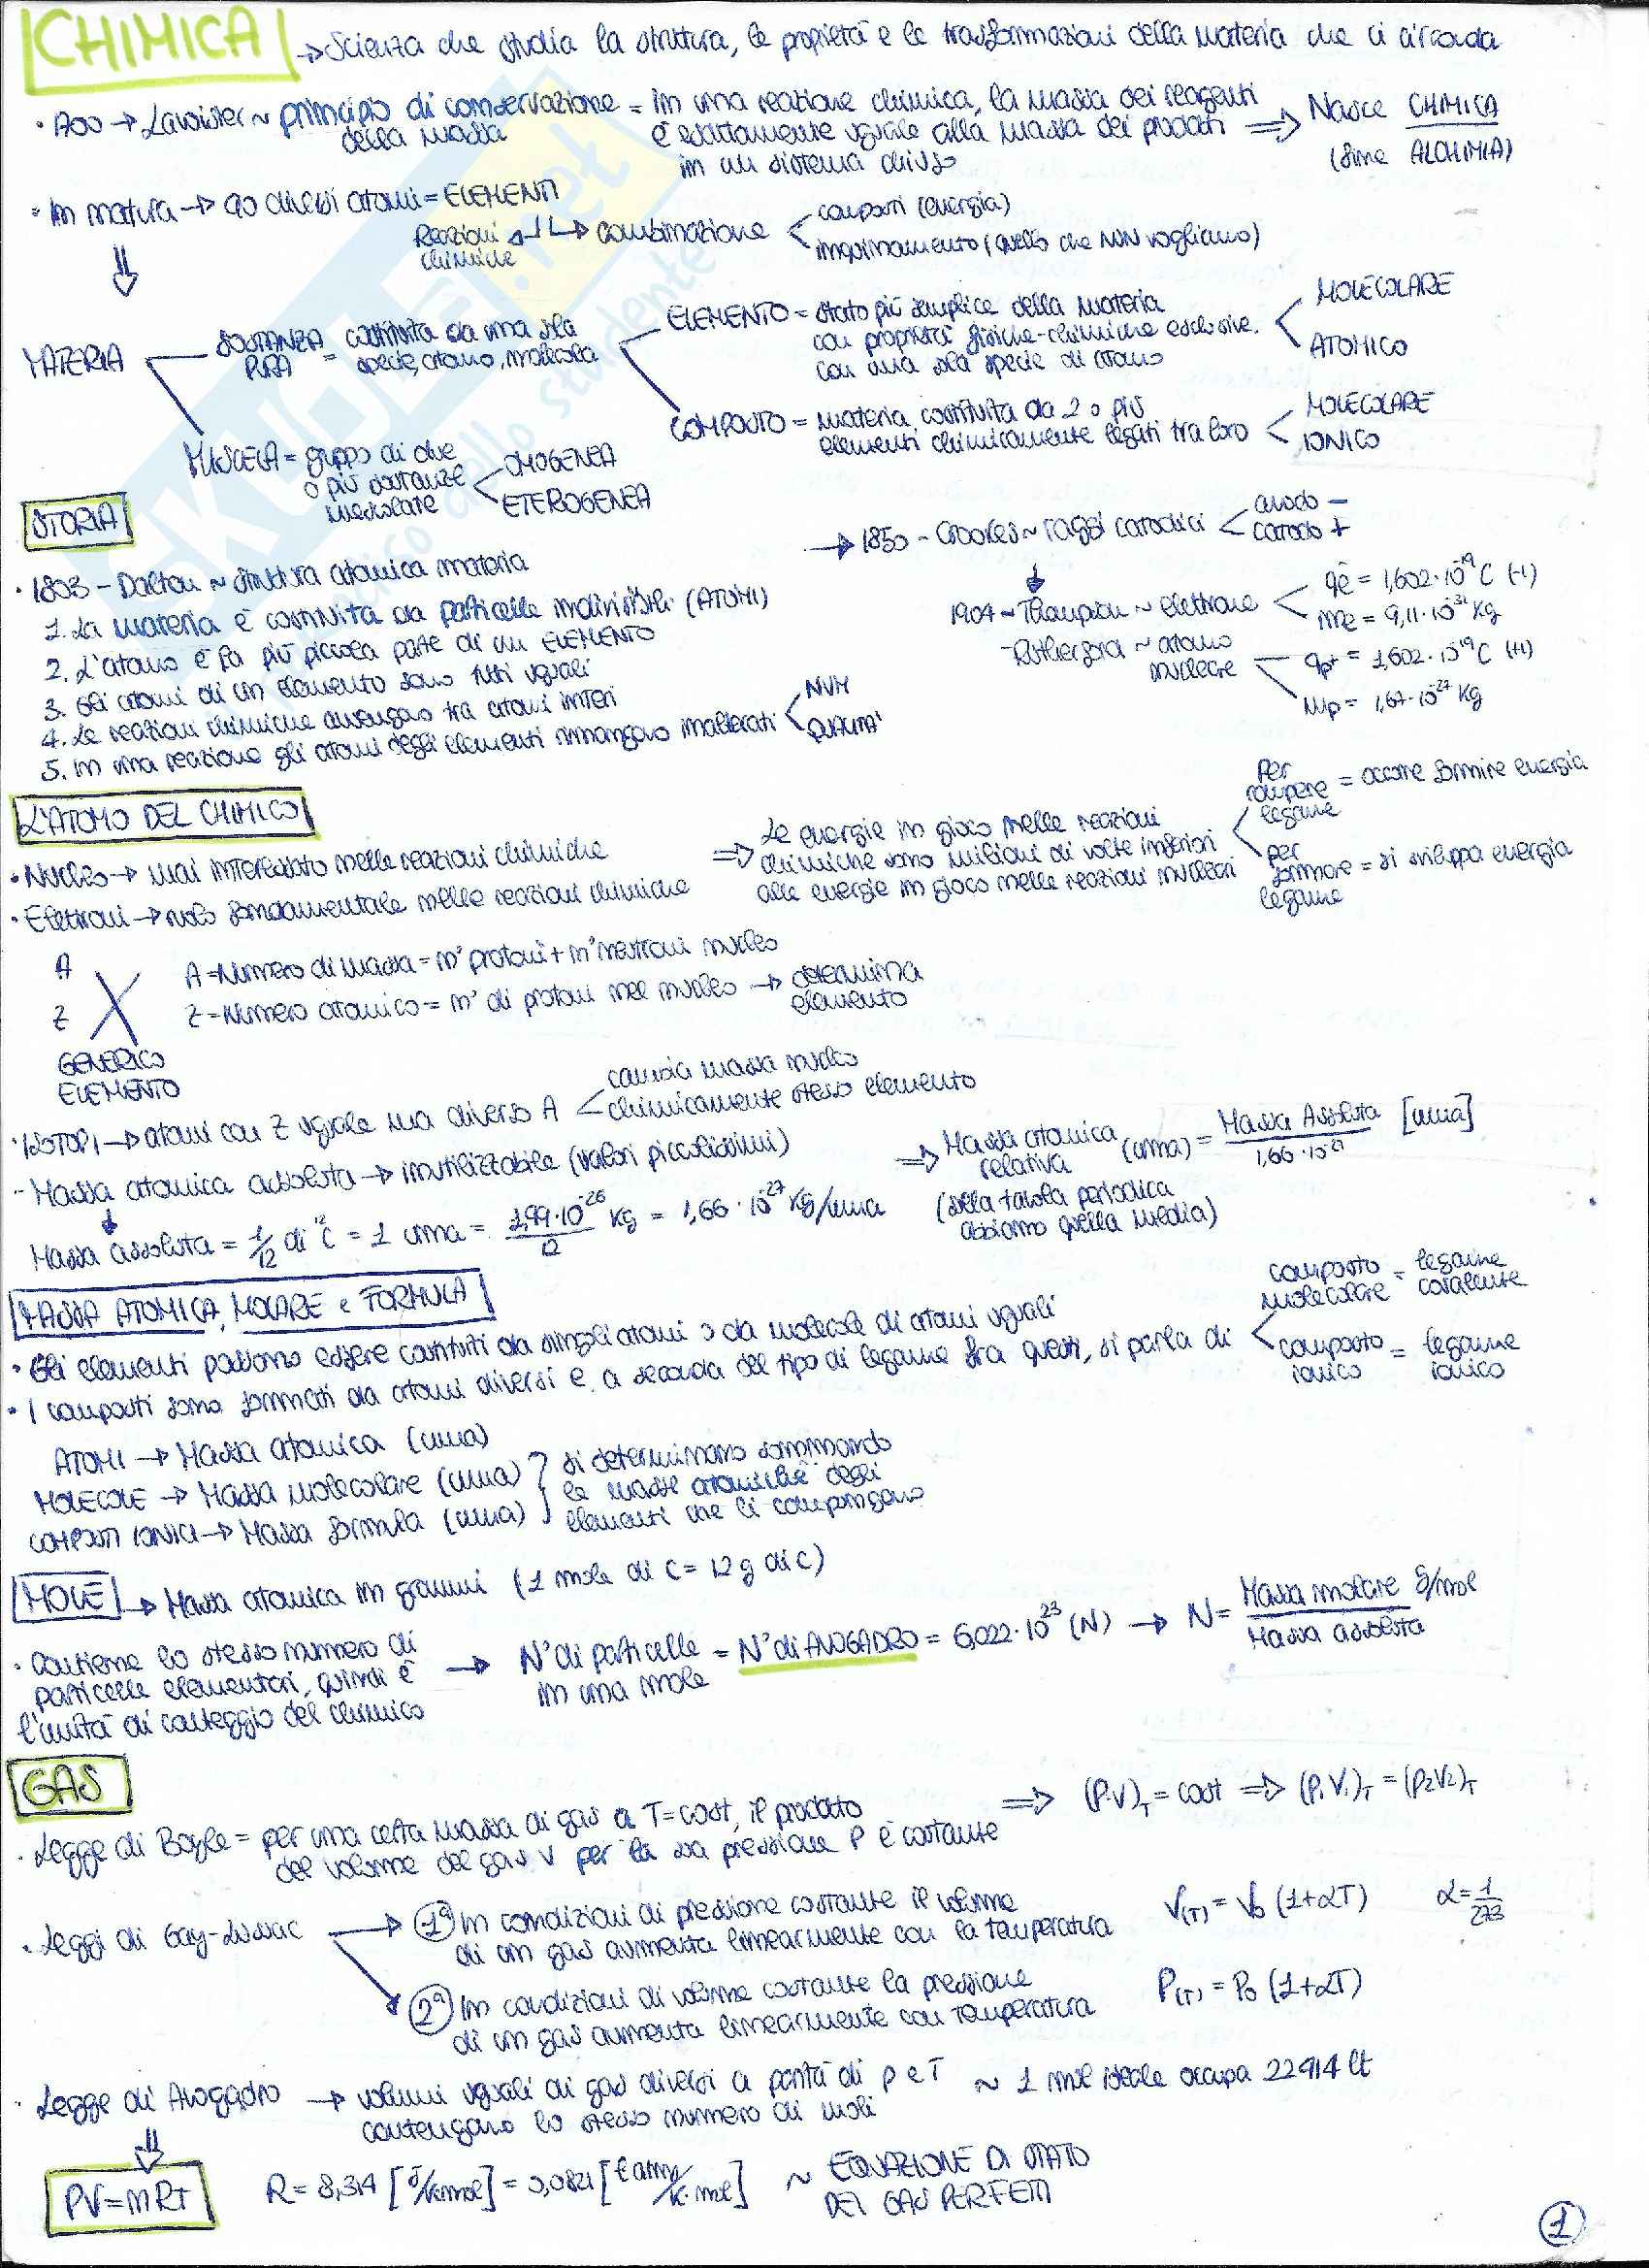 CHIMICA → Scienza che studia la struttura, le proprietà e le trasformazioni della materia che ci circonda
• 700 → Lavoisier ~ principio di conservazione della massa = in una reazione chimica, la massa dei reagenti è esattamente uguale alla massa dei prodotti in un sistema chiuso ⇒ Nasce CHIMICA (fine ALCHIMIA)
• In natura → 90 diversi atomi = ELEMENTI
Reazioni chimiche
combinazione
composti (energia)
inquinamento (quello che NON vogliamo)
MATERIA
SOSTANZA PURA = costituita da una sola specie, atomo, molecola
ELEMENTO = stato più semplice della materia con proprietà fisiche-chimiche esclusive. con una sola specie di atomo
MOLECOLARE
ATOMICO
COMPOSTO = materia costituita da 2 o più elementi chimicamente legati tra loro
MOLECOLARE
IONICO
MISCELA = gruppo di due o più sostanze mescolate
OMOGENEA
ETEROGENEA
STORIA
• 1803 - Dalton ~ struttura atomica materia
1. La materia è costituita da particelle indivisibili (ATOMI)
2. L'atomo è la più piccola parte di un ELEMENTO
3. Gli atomi di un elemento sono tutti uguali
4. Le reazioni chimiche avvengono tra atomi interi
5. In una reazione gli atomi degli elementi rimangono inalterati
NUM
QUALITA'
→ 1850 - Crookes ~ raggi catodici
anodo -
catodo +
1904 - Thompson ~ elettrone
qe⁻ = 1,602·10⁻¹⁹ C (-1)
me = 9,11·10⁻³¹ Kg
- Rutherford ~ atomo nucleare
qp+ = 1,602·10⁻¹⁹ C (+1)
mp = 1,67·10⁻²⁷ Kg
L'ATOMO DEL CHIMICO
• Nucleo → mai interessato nelle reazioni chimiche
• Elettroni → ruolo fondamentale nelle reazioni chimiche
⇒ Le energie in gioco nelle reazioni chimiche sono milioni di volte inferiori alle energie in gioco nelle reazioni nucleari
per rompere legame = occorre fornire energia
per formare legame = si sviluppa energia
A
Z
X
GENERICO ELEMENTO
A = Numero di massa = n° protoni + n° neutroni nucleo
Z = Numero atomico = n° di protoni nel nucleo → determina elemento
• ISOTOPI → atomi con Z uguale ma diverso A
cambia massa nucleo
chimicamente stesso elemento
- Massa atomica assoluta → inutilizzabile (valori piccolissimi)
Massa assoluta = 1/12 di ¹²C = 1 uma = 1,99·10⁻²⁶/12 Kg = 1,66·10⁻²⁷ Kg/uma
⇒ Massa atomica relativa (uma) = Massa Assoluta / 1,66·10⁻²⁷ [uma]
(sulla tavola periodica abbiamo quella media)
MASSA ATOMICA, MOLARE e FORMULA
• Gli elementi possono essere costituiti da singoli atomi o da molecole di atomi uguali
• I composti sono formati da atomi diversi e, a seconda del tipo di legame fra questi, si parla di
composto molecolare = legame covalente
composto ionico = legame ionico
ATOMI → Massa atomica (uma)
MOLECOLE → Massa molecolare (uma)
COMPOSTI IONICI → Massa formula (uma)
si determinano sommando le masse atomiche degli elementi che li compongono
MOLE → Massa atomica in grammi (1 mole di C = 12 g di C)
• Contiene lo stesso numero di particelle elementari, quindi è l'unità di conteggio del chimico
→ N° di particelle in una mole = N° di AVOGADRO = 6,022·10²³ (N) → N = Massa molare g/mol / Massa assoluta
GAS
• Legge di Boyle = per una certa massa di gas a T=cost, il prodotto del volume del gas V per la sua pressione P è costante ⇒ (P·V)T = cost ⇒ (P₁V₁)T = (P₂V₂)T
• Leggi di Gay-Lussac
1ª In condizioni di pressione costante il volume di un gas aumenta linearmente con la temperatura V(T) = V₀ (1+αT) α = 1/273
2ª In condizioni di volume costante la pressione di un gas aumenta linearmente con temperatura P(T) = P₀ (1+αT)
• Legge di Avogadro → volumi uguali di gas diversi a parità di P e T contengono lo stesso numero di moli ~ 1 mol ideale occupa 22414 lt
PV = nRT
R = 8,314 [J/K·mol] = 0,0821 [l·atm/K·mol] ~ EQUAZIONE DI STATO DEI GAS PERFETTI
1
SKUOLA.net